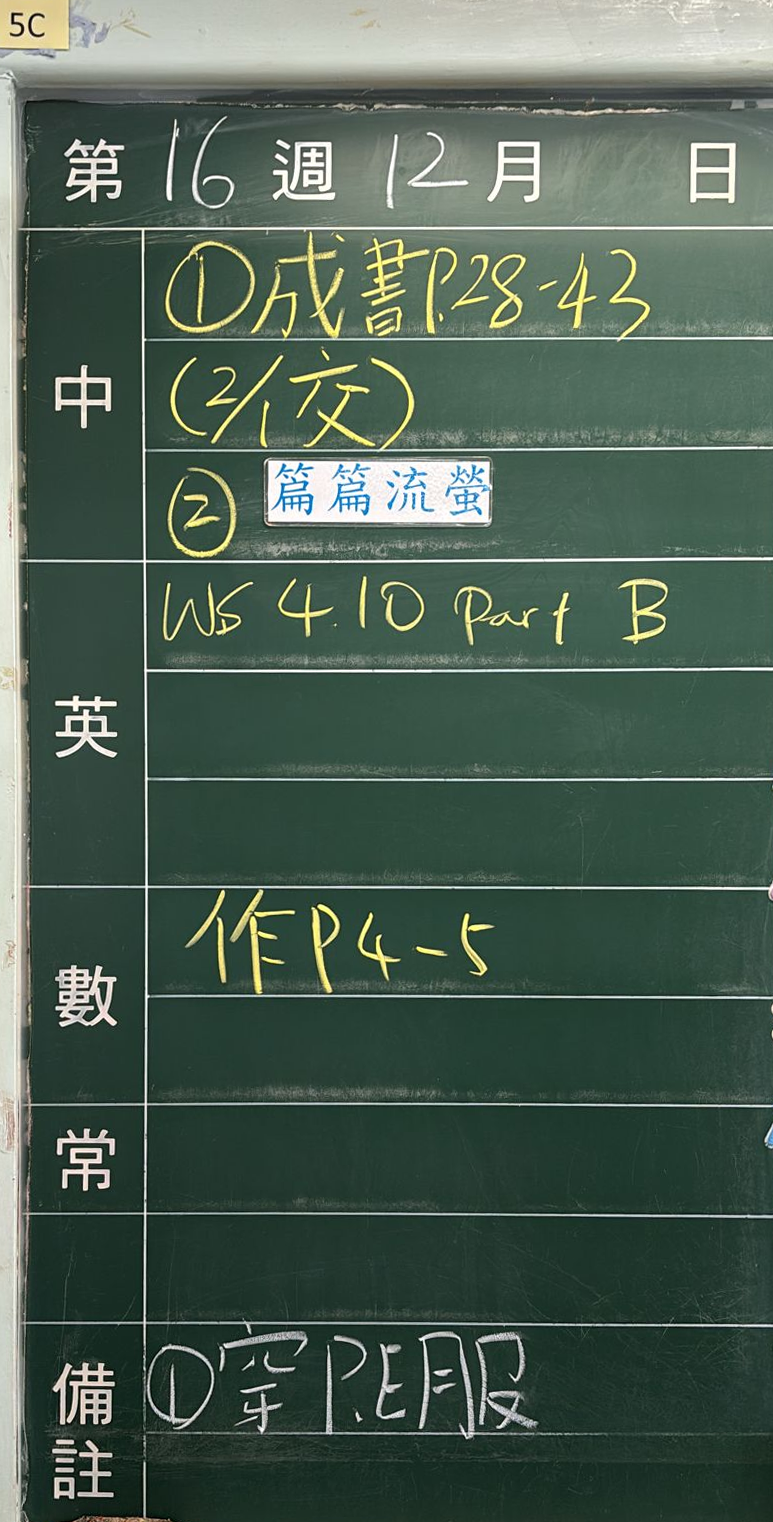 5C
第16週12月 日
中
①成書P.28-43
(2/1交)
②篇篇流螢
英
WS 4.10 Part B
數
作P4-5
常
備註
①穿P.E服